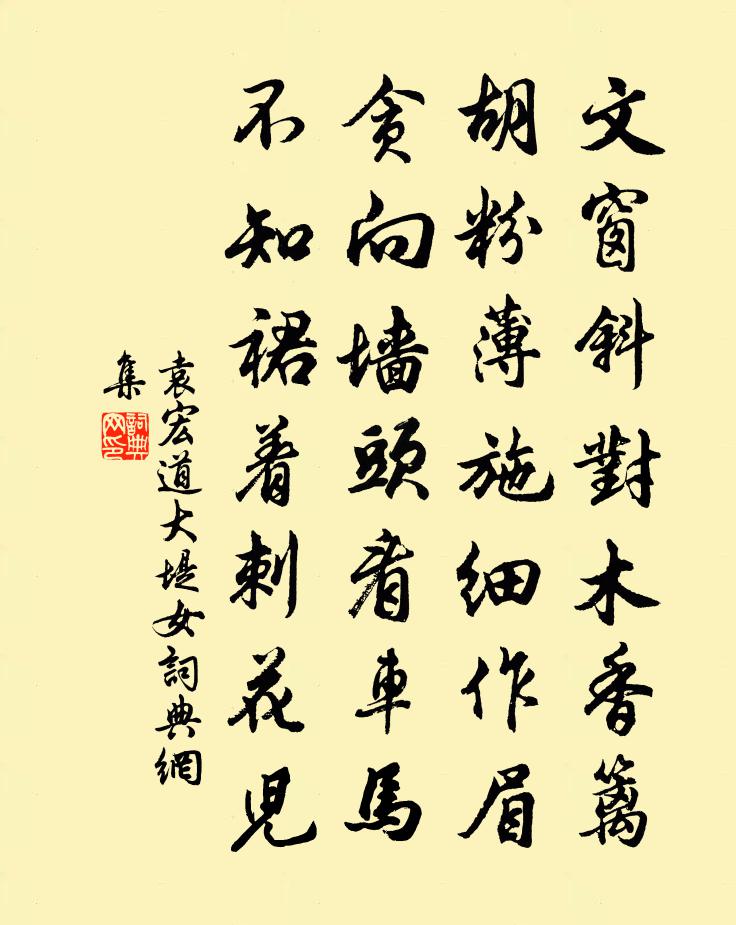 文窗斜對木香篱
胡粉薄施细作眉
贪向墙頭看車馬
不知裙着刺花児
袁宏道大堤女詞典網
集
詞典
网印